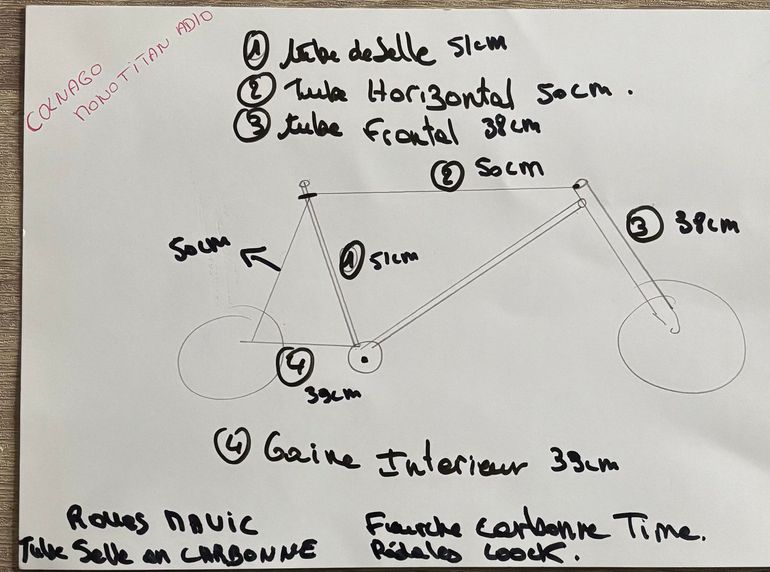 COLNAGO
MONOTITAN ADIO
① tube deselle 51cm
② Tube Horizontal 50cm .
③ tube Frontal 38cm
② 50cm
50cm
① 51cm
③ 38cm
④
39cm
④ Gaine Interieur 39cm
Roues MAVIC
Tube Selle en CARBONNE
Fourche carbonne Time.
Pédales LOOCK.